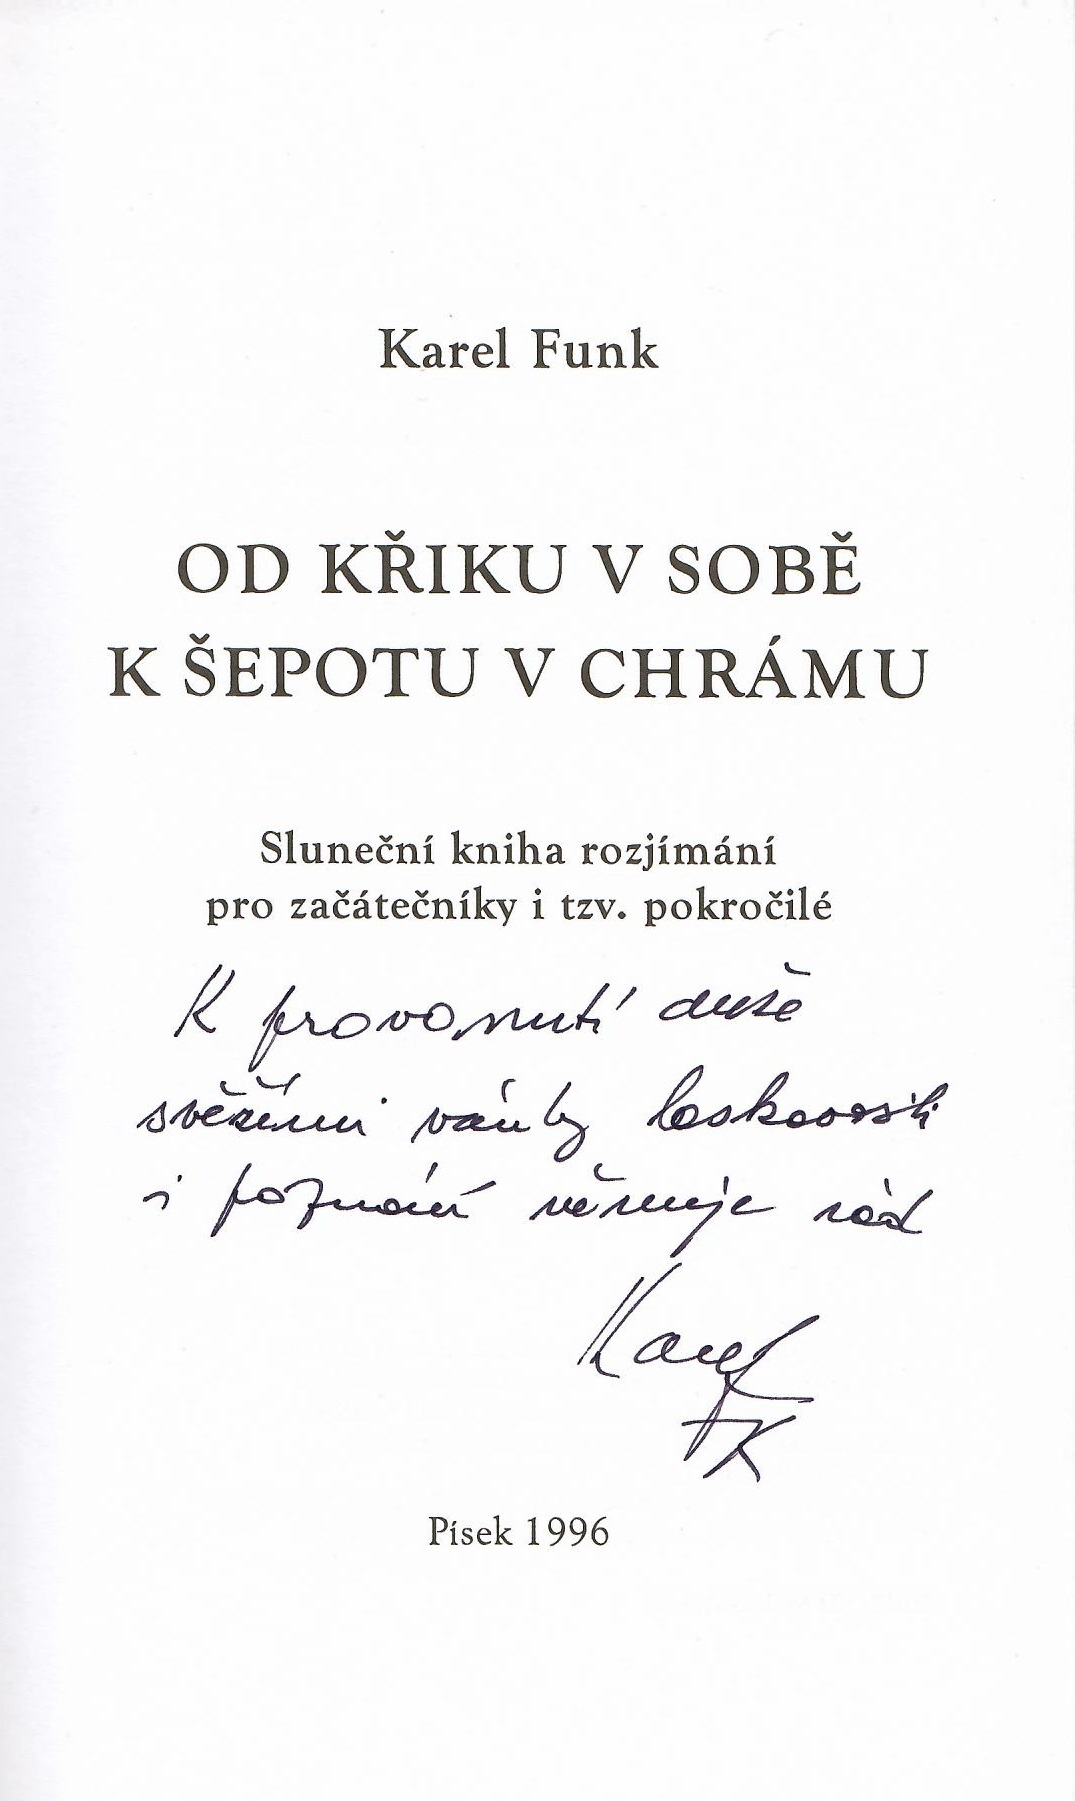 Karel Funk
OD KŘIKU V SOBĚ
K ŠEPOTU V CHRÁMU
Sluneční kniha rozjímání
pro začátečníky i tzv. pokročilé
K provonutí duše
svěžími vánky laskavosti
i poznání věnuje rád
Karel
FK
Písek 1996